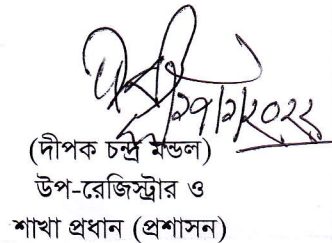 (দীপক চন্দ্র মন্ডল)
উপ-রেজিস্ট্রার ও
শাখা প্রধান (প্রশাসন)